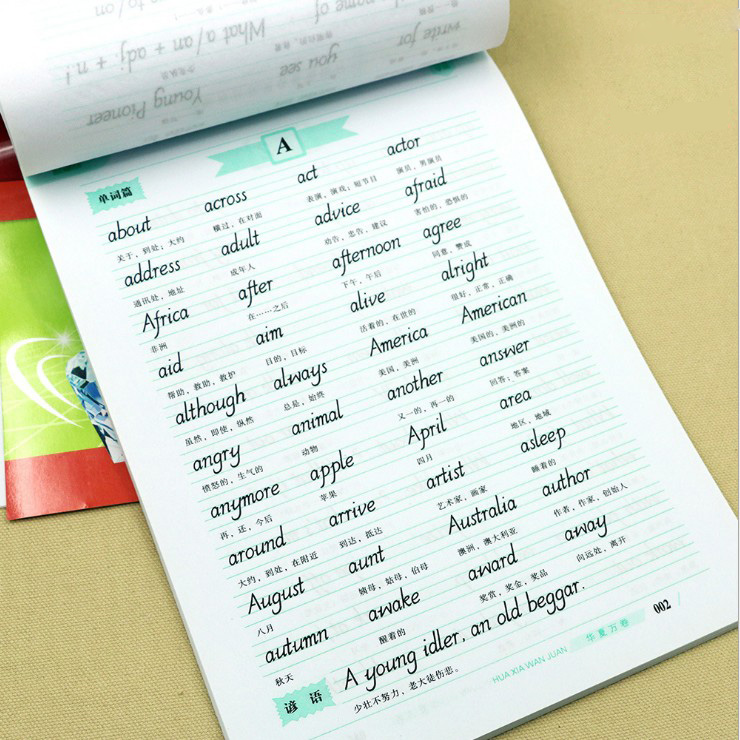 What a / an + adj + n !
you see
Young Pioneer
write for
name of
A
单词篇
about across act actor
关于，到处；大约 横过，在对面 表演，演戏；短节目 演员，男演员
address adult advice afraid
通讯处，地址 成年人 劝告，忠告，建议 害怕的，恐惧的
Africa after afternoon agree
非洲 在……之后 下午，午后 同意，赞成
aid aim alive alright
帮助，救助，救护 目的，目标 活着的，在世的 很好，正常，正确
although always America American
虽然，即使，纵然 总是，始终 美国，美洲 美国的，美洲的
angry animal another answer
愤怒的，生气的 动物 又一的，再一的 回答；答案
anymore apple April area
再，还，今后 苹果 四月 地区，地域
around arrive artist asleep
大约，到处，在附近 到达，抵达 艺术家，画家 睡着的
August aunt Australia author
八月 婶母，姑母，伯母 澳洲，澳大利亚 作者，作家，创始人
autumn awake award away
秋天 醒着的 奖赏，奖金，奖品 向远处，离开
谚语 A young idler, an old beggar.
少壮不努力，老大徒伤悲。
HUA XIA WAN JUAN 华夏万卷 002